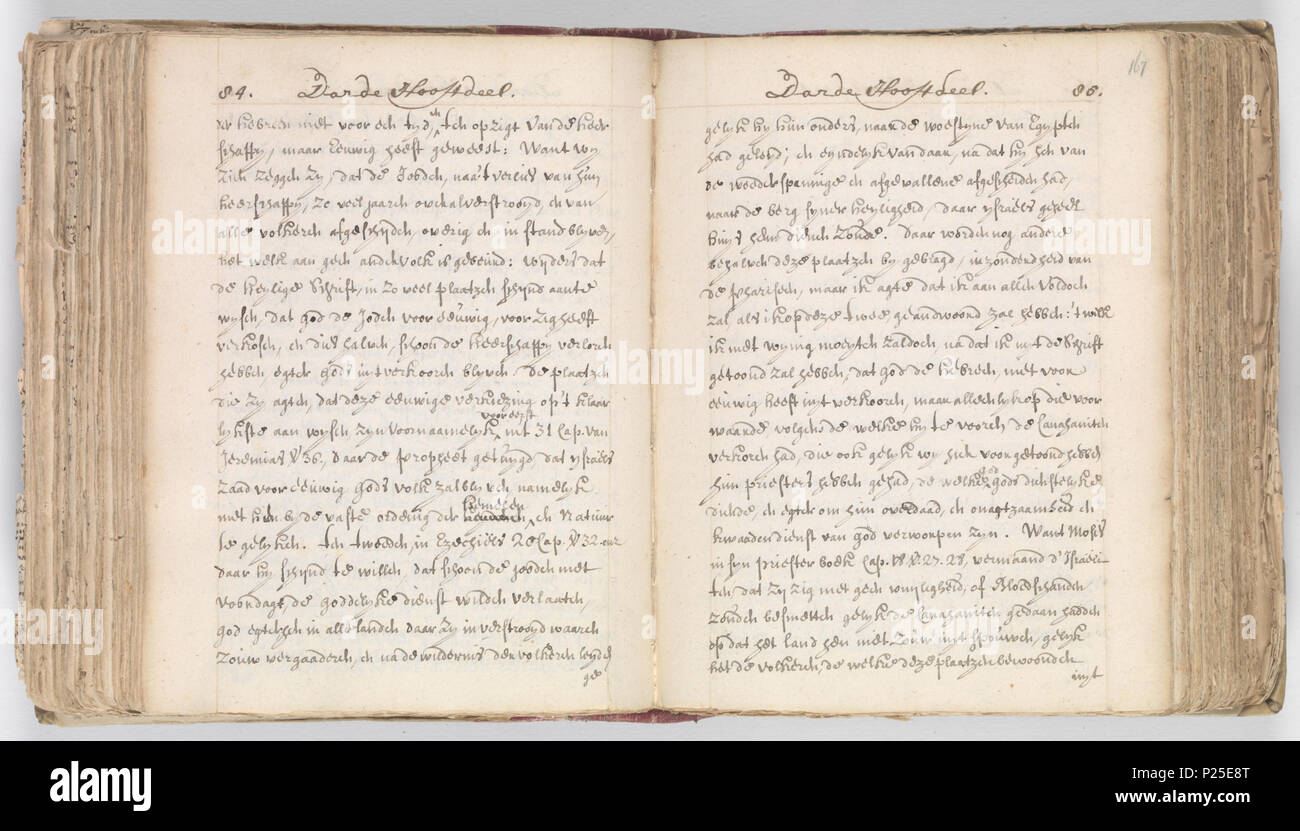 84. Darde Hoofdeel.
der hebreen niet voor een tyd, en ten opzigt van de heer
schappy, maar eeuwig heeft geweest: Want wy
zien zeggen zy, dat de Jooden, naa't verlies van hun
heerschappy, zo veel jaaren overal verstrooyd, en van
alle volkeren afgeschyden, overig en in stand blyven,
het welk aan geen ander volk is gebeurd: wyders dat
de heylige Schrift, in zo veel plaatzen schynd aan te
wysen, dat god de Joden voor eeuwig, voor zig heeft
verkosen, en dies halven, schoon de heerschappy verloren
hebben, egter gods uytverkooren blyven. De plaatzen
die zy agten, dat deze eeuwige verkiezing op't klaar
lykste aan wysen zyn voornaamelyk, vooreerst uit 31 Cap. van
Jeremias V 36, daar de propheet getuygd, dat ysraëls
zaad voor eeuwig gods volk zal blyven, namelyk
met hun by de vaste ordening der hemelen, en Natuur
te gelyken. Ten tweeden, in Ezechiëls 20 Cap. V 32 enz
daar hy schynd te willen, dat schoon de Jooden met
voordagt, de goddelyke dienst wilden verlaaten,
god egter hen in alle landen daar zy in verstrooyd waaren
zouw vergaaderen, en na de wildernis der volkeren leyden
ge
Darde Hoofdeel. 85.
167
gelyk hy hun ouders, naar de woestyne van Egypten
had geleyd; en eyndelyk van daar, na dat hy hen van
de weederspannige en afgevallene afgescheiden had,
naar de berg syner heyligheid, daar ysraëls geheel
huys hem dienen zoude. Daar worden nog andere
behalven deze plaatzen by gebragt, inzonderheid van
de phariseen, maar ik agte dat ik aan allen voldoen
zal als ik op deze twee geandwoord zal hebben: 't welk
ik met wynig moeyten zal doen, na dat ik uyt de Schrift
getoond zal hebben, dat god de hebreen, niet voor
eeuwig heeft uyt verkooren, maar alleenlyk op die voor
waarde volgens de welke hy te vooren de Canaaniten
verkoren had, die ook gelyk wy hier voor getoond hebben
hun priesters hebben gehad, de welke god godsdienstelyk
dienden, en egter om hun overdaad, en onagtzaamheid en
kwaaden dienst van god verworpen zyn. Want Moses
in syn priester boek Cap. 18 V. 27. 28, vermaand d'Israëli
ten, dat zy zig met geen vuyligheid, of bloedschanden
zouden besmetten gelyk de Canaaniten gedaan hadden
op dat het land hen niet zouw uyt spouwen, gelyk
het de volkeren, de welke deze plaatzen bewoonden
uyt
alamy
Image ID: P25E8T
www.alamy.com